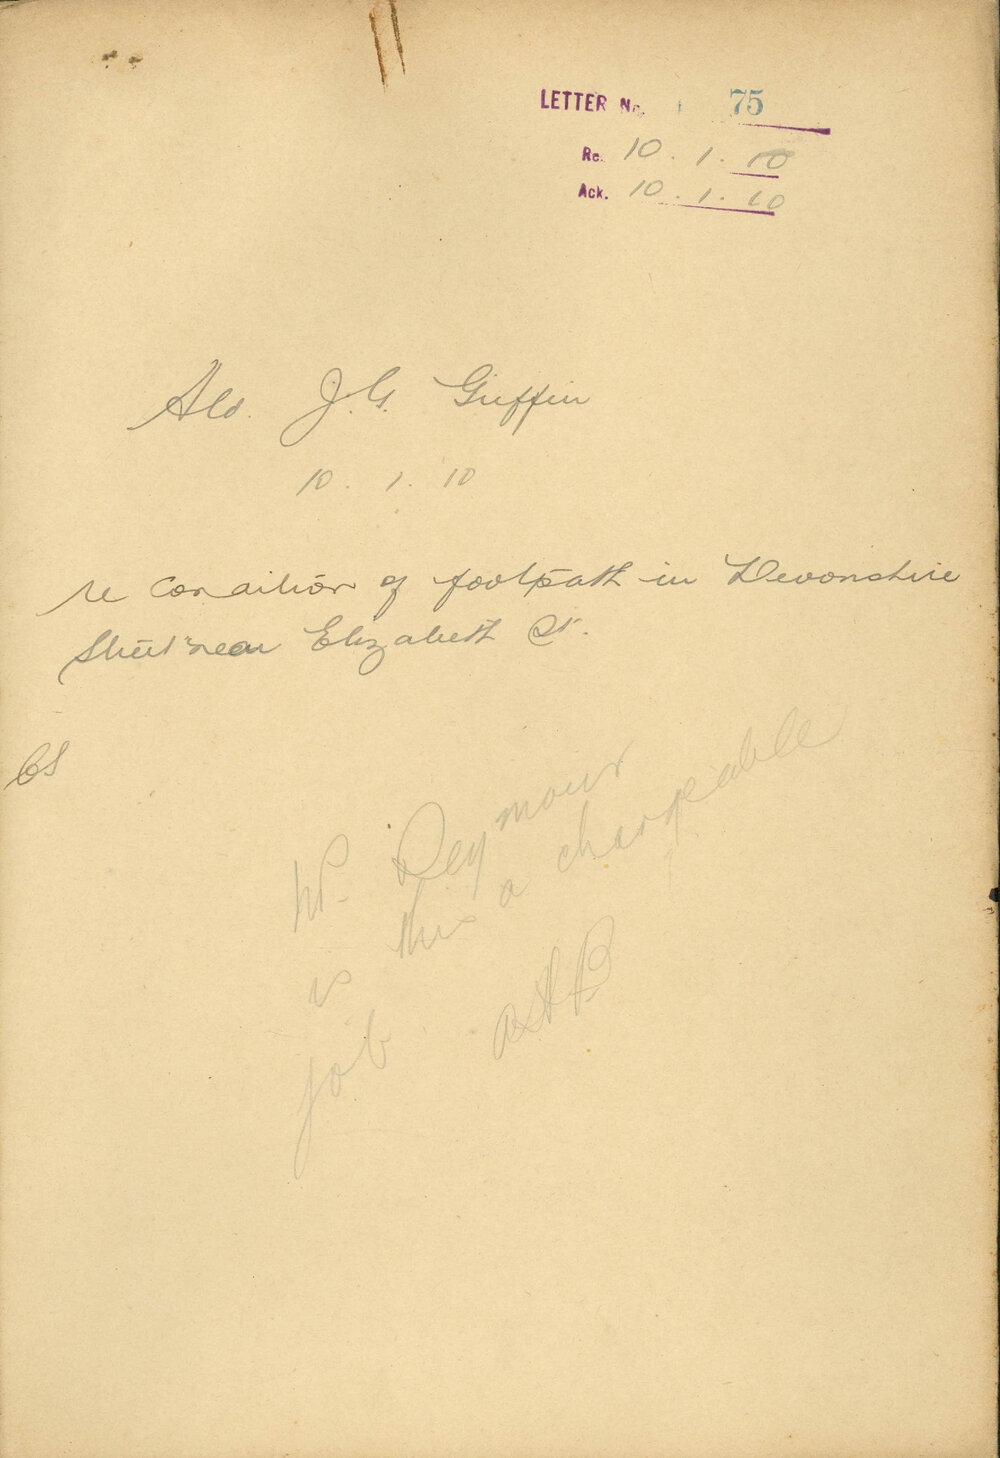 LETTER No. 75
Re. 10 . 1 . 10
Ack. 10 . 1 . 10
Ald. J.G. Griffin
10 . 1 . 10
re condition of footpath in Devonshire
Street near Elizabeth St.
CS
Mr. Seymour
is this a chargeable
job